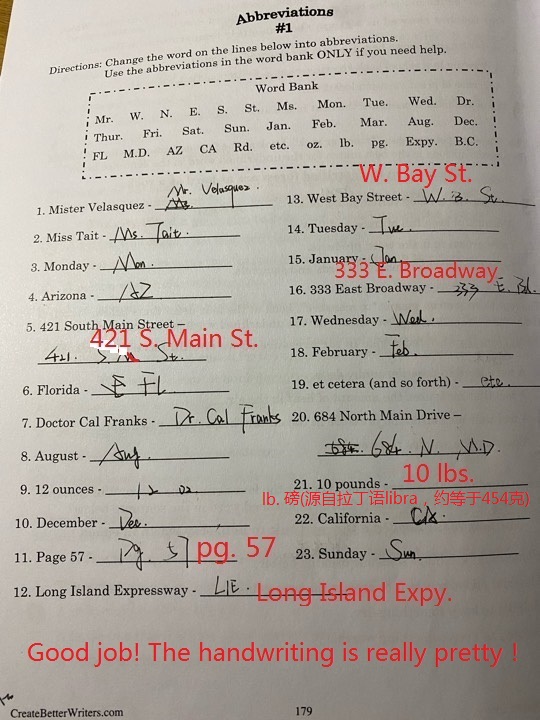 Abbreviations
#1
Directions: Change the word on the lines below into abbreviations.
Use the abbreviations in the word bank ONLY if you need help.
Word Bank
Mr. W. N. E. S. St. Ms. Mon. Tue. Wed. Dr.
Thur. Fri. Sat. Sun. Jan. Feb. Mar. Aug. Dec.
FL M.D. AZ CA Rd. etc. oz. lb. pg. Expy. B.C.
W. Bay St.
1. Mister Velasquez - Mr. Velasquez.
2. Miss Tait - Ms. Tait.
3. Monday - Mon.
4. Arizona - AZ
5. 421 South Main Street –
421 S. Main St.
421. S. M. St.
6. Florida - FL
7. Doctor Cal Franks - Dr. Cal Franks
8. August - Aug.
9. 12 ounces - 12 oz.
10. December - Dec.
11. Page 57 - Pg. 57 pg. 57
12. Long Island Expressway - LIE. Long Island Expy.
13. West Bay Street - W. B. St.
14. Tuesday - Tue.
15. January - Jan.
333 E. Broadway
16. 333 East Broadway - 333 E. Bd.
17. Wednesday - Wed.
18. February - Feb.
19. et cetera (and so forth) - etc.
20. 684 North Main Drive –
684. N. M.D.
21. 10 pounds - 10 lbs.
lb. 磅(源自拉丁语libra，约等于454克)
22. California - CA
23. Sunday - Sun.
Good job! The handwriting is really pretty！
CreateBetterWriters.com
179